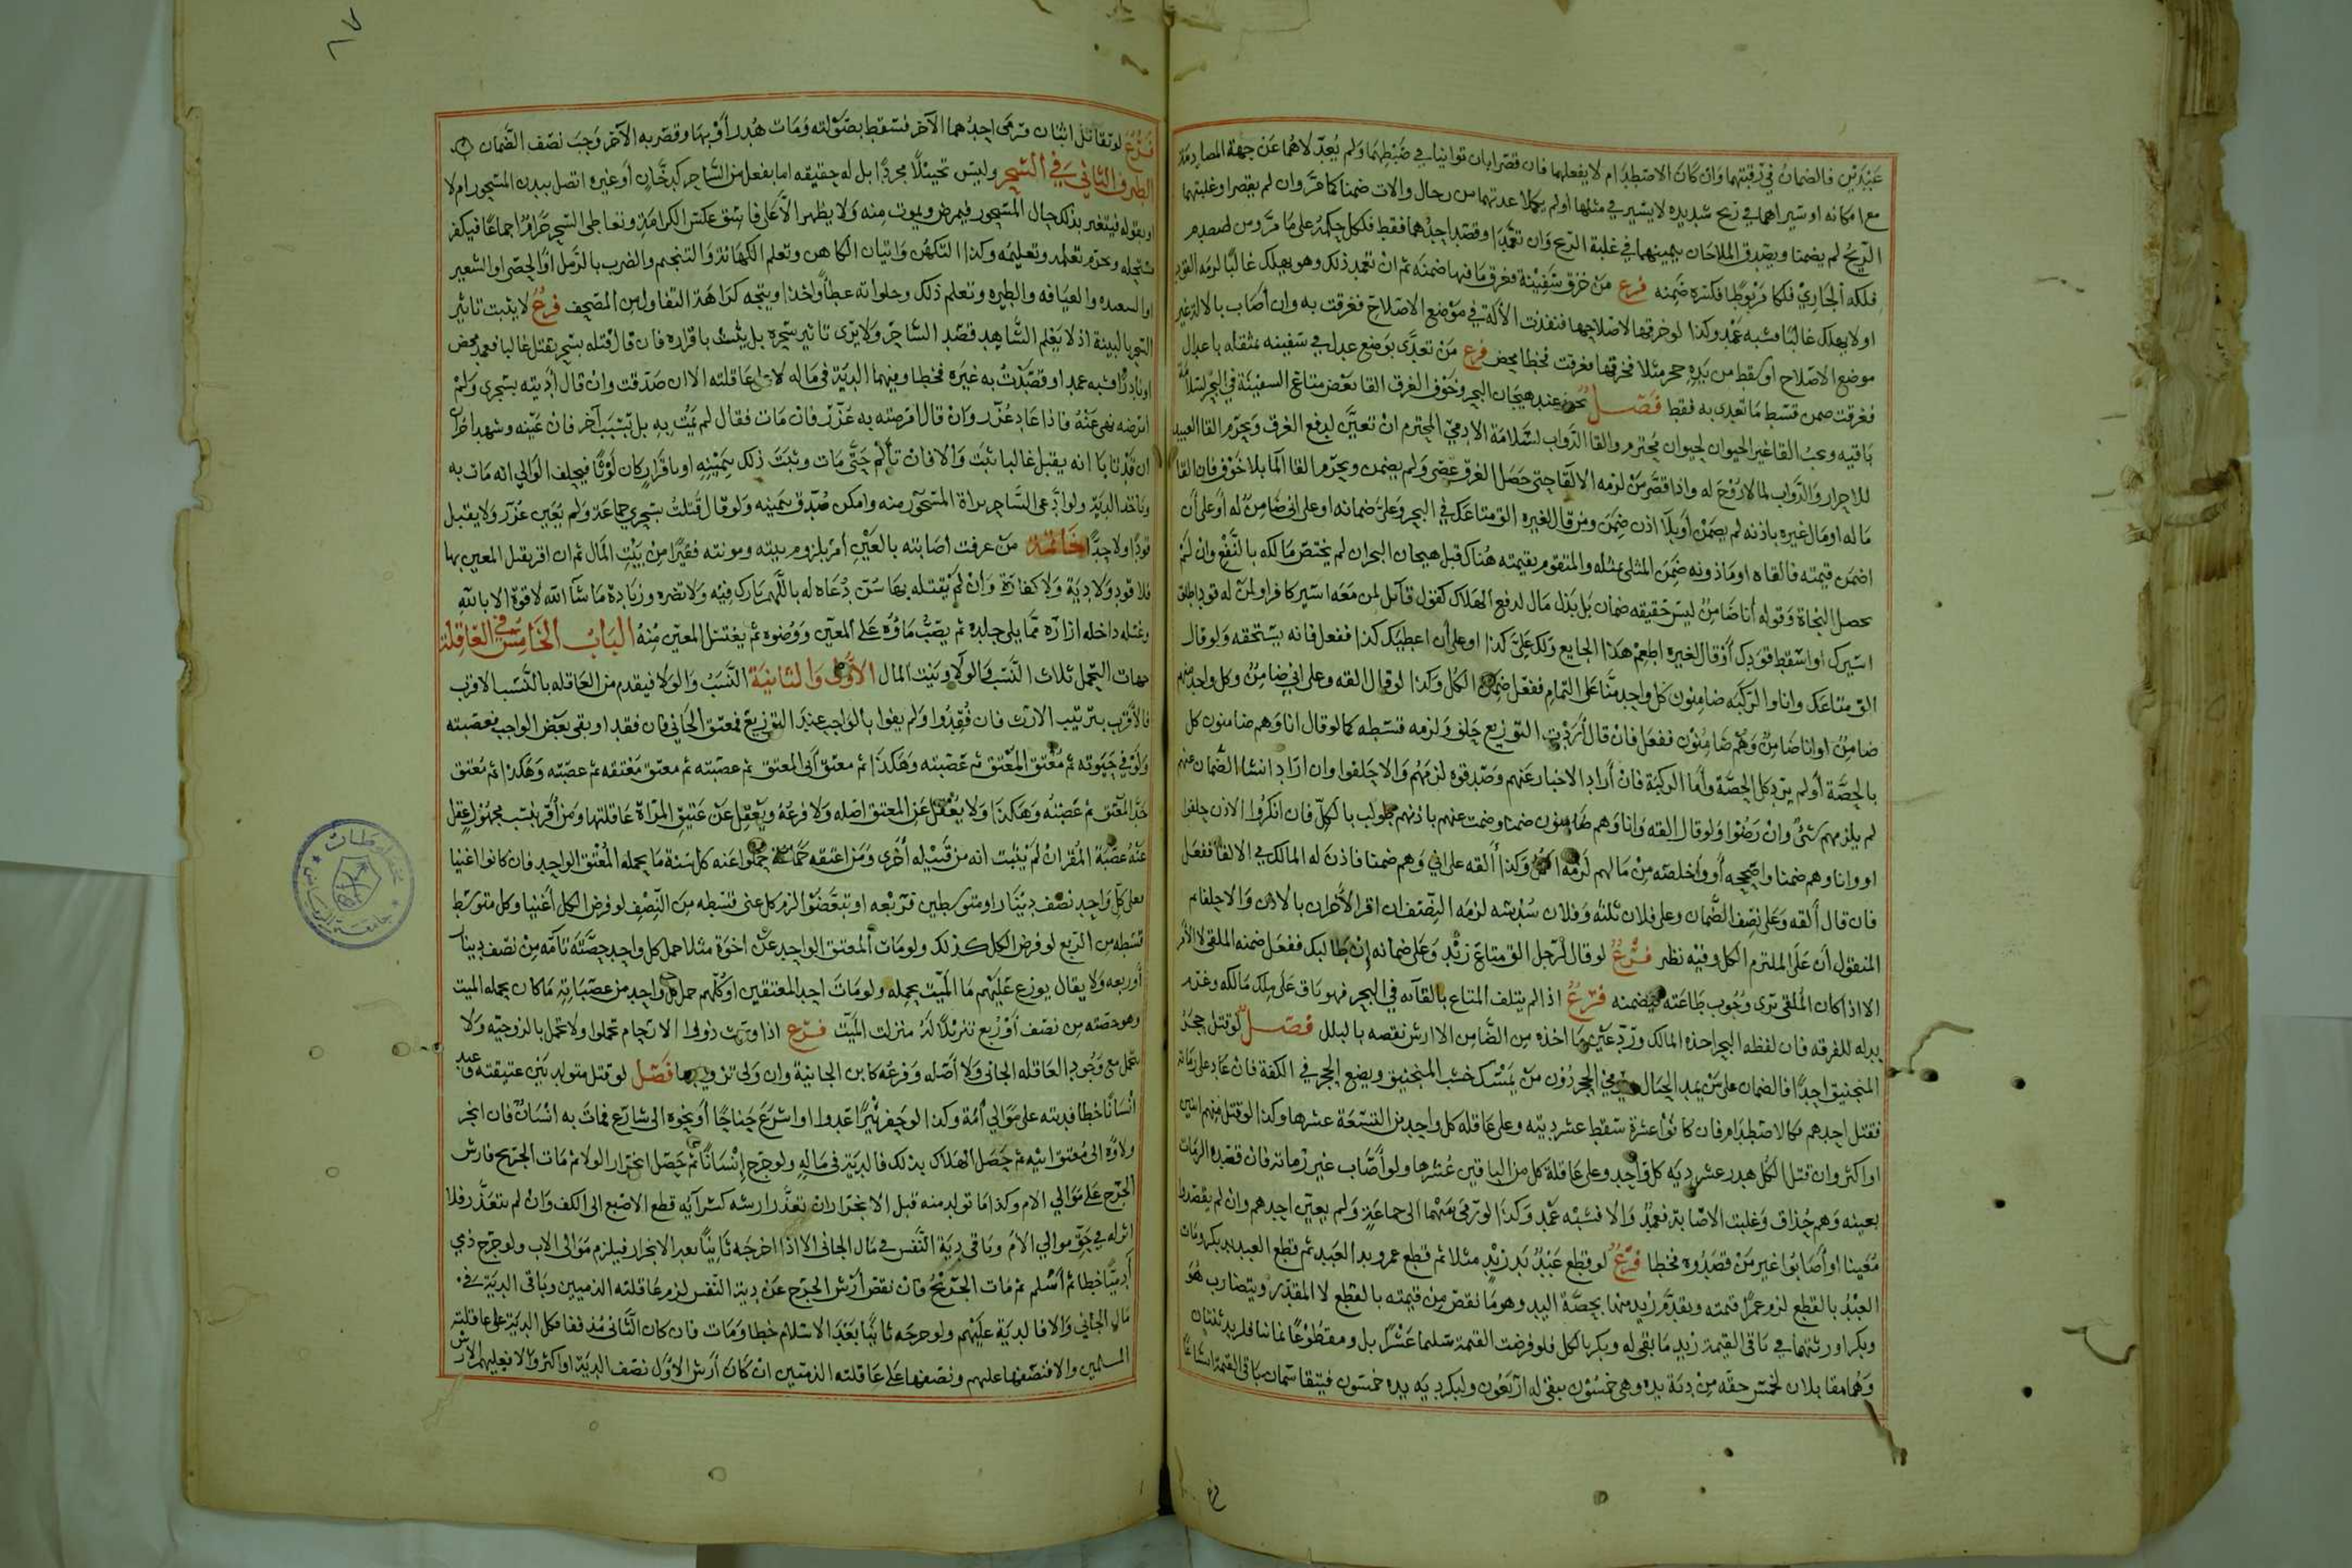 عبدين فالضمان في رقبتهما وان كان الاصطدام لا بفعلهما فان قصرا بان توانيا في ضبطهما ولم يعدلاهما عن جهة المصادمة
مع امكانه او سيراهما في ريح شديده لا يسير في مثلها او لم يكملا عدتهما من رجال والات ضمنا كما مر وان لم يقصرا وغلبتهما
الريح لم يضمنا ويصدق الملاحان بيمينهما في غلبة الريح وان تعمدا او قصد احدهما فقط فلكل حكمه على ما مر ومن صدم
فلكه الجاري فلكا مربوطا فكسره ضمنه فرع من خرق سفينة فغرق ما فيها ضمنه ثم ان تعمد ذلك وهو يهلك غالبا لزمه القود
او لا يهلك غالبا فشبه عمد وكذا لو خرقها لاصلاحها فنفذت الالة في موضع الاصلاح فغرقت به وان اصاب بالالة غير
موضع الاصلاح او سقط من يده حجر مثلا فخرقها فغرقت فخطا محض فرع من تعدى بوضع عدل في سفينه مثقله باعدال
فغرقت ضمن قسط ما تعدى به فقط فصل يجوز عند هيجان البحر وخوف الغرق القا بعض متاع السفينة في البحر لسلامة
باقيه ويجب القا غير الحيوان لحيوان محترم والقا الدواب لسلامة الادمي المحترم ان تعين لدفع الغرق ويحرم القا العبيد
للاحرار والدواب لما لا روح له واذا قصر من لزمه الالقا حتى حصل الغرق عصى ولم يضمن ويحرم القا المال بلا خوف فان القا
ماله او مال غيره باذنه لم يضمن او بلا اذن ضمن ومن قال لغيره الق متاعك في البحر وعلي ضمانه او على اني ضامن له او على ان
اضمن قيمته فالقاه او ماذونه ضمن المثلي بمثله والمتقوم بقيمته هناك قبل هيجان البحر ان لم يختص مالكه بالنفع وان لم
يحصل النجاة وقوله انا ضامن ليس حقيقه ضمان بل بذل مال لدفع الهلاك كقول قائل لمن معه اسير كافر او لمن له قود اطلق
اسيرك او اسقط قودك او قال لغيره اطعم هذا الجايع ولك علي كذا او على ان اعطيك كذا ففعل فانه يستحقه ولو قال
الق متاعك وانا والركبه ضامنون كل واحد منا على التمام ففعل ضمن الكل وكذا لو قال القه وعلى اني ضامن وكل واحد منهم
ضامن او انا ضامن وهم ضامنون ففعل فان قال اردت التوزيع حلف ولزمه قسطه كما لو قال انا وهم ضامنون كل
بالحصة او لم يرد كل الحصة واما الركبة فان اراد الاخبار عنهم وصدقوه لزمهم والا حلفوا وان اراد انشا الضمان عنهم
لم يلزمهم شئ وان رضوا ولو قال القه وانا وهم ضامنون ضمنا وضمنت عنهم باذنهم طولب بالكل فان انكروا الاذن حلفوا
او وانا وهم ضمنا واصححه او واخلصه من مالهم لزمه الكل وكذا القه على اني وهم ضمنا فاذن له المالك في الالقا ففعل
فان قال القه وعلى نصف الضمان وعلى فلان ثلثه وفلان سدسه لزمه النصف ان اقر الآخران بالاذن والا حلفا ثم
المنقول ان على الملتزم الكل وفيه نظر فرع لو قال لرجل الق متاع زيد وعلى ضمانه ان طالبك ففعل ضمنه الملقي لا الآمر
الا اذا كان الملقي يرى وجوب طاعته فيضمنه فرع اذا لم يتلف المتاع بالقآئه في البحر فهو باق على ملك مالكه وغرم
بدله للفرقه فان لفظه البحر اخذه المالك ورد عين ما اخذه من الضامن الا ارش نقصه بالبلل فصل لو قتل حجر
المنجنيق احدا فالضمان على من يمد الحبال ويرمي الحجر دون من يمسك خشب المنجنيق ويضع الحجر في الكفة فان عاد على رماته
فقتل احدهم فكالاصطدام فان كانوا عشرة سقط عشر ديته وعلى عاقله كل واحد من التسعة عشرها وكذا لو قتل منهم اثنين
او اكثر وان قتل الكل هدر عشر ديه كل واحد وعلى عاقلة كل من الباقين عشرها ولو اصاب غير رماته فان قصده الرماة
بعينه وهم حذاق وغلبت الاصابة فعمد والا فشبه عمد وكذا لو رمى سهما الى جماعة ولم يعين احدهم وان لم يقصدوا
معينا او اصابوا غير من قصدوه فخطا فرع لو قطع عبد يد زيد مثلا ثم قطع عمرو يد العبد ثم قطع العبد يد بكر ومات
العبد بالقطع لزم عمرا قيمته ويقدم زيد منها بحصة اليد وهو ما نقص من قيمته بالقطع لا المقدر ويتضارب هو
وبكر او رثتهما في باقي القيمة زيد ما بقي له وبكر بالكل فلو فرضت القيمة سليما عشرا بل ومقطوعا ثمانيا فلزيد ثنتان
وهما مقابلان لخمس حقه من دية يده وهي خمسون يبقى له اربعون ولبكر ديه يده خمسون فيتقاسمان باقي القيمة اتساعا
فرع لو تقاتل اثنان فرمى احدهما الآخر فسقط بصولته ومات هدر او بها وقصر به الآخر وجب نصف الضمان
الطرف الثاني في السحر وليس تخييلا مجردا بل له حقيقه اما بفعل من الساحر كدخان او غيره اتصل ببدن المسحور ام لا
او بقوله فيتغير بذلك حال المسحور فيمرض ويموت منه ولا يظهر الا على فاسق عكس الكرامة وتعاطي السحر حرام اجماعا فيكفر
مستحله وحرم تعلمه وتعليمه وكذا التكهن واتيان الكاهن وتعلم الكهانة والتنجيم والضرب بالرمل او الحصى او الشعير
او الشعبده والعيافه والطيره وتعلم ذلك وحلوانه عطأ واخذا ويتجه كراهة التفاول من المصحف فرع لا يثبت تاثير
السحر بالبينة اذ لا يعلم الشاهد قصد الساحر ولا يرى تاثير سحره بل يثبت باقراره فان قال قتله بسحر يقتل غالبا فعمد محض
او نادرا فشبه عمد او قصدت به غيره فخطا وفيهما الدية في ماله لا على عاقلته الا ان صدقت وان قال اذيته بسحري ولم
امرضه نهى عنه فاذا عاد عزر وان قال امرضته به عزر فان مات فقال لم يمت به بل بسبب آخر فان عينه وشهد اخران
ان قد تابا انه يقتل غالبا ثبت والا فان تألم حتى مات وثبت ذلك بيمينه او باقرار كان لوثا فيحلف الوالي انه مات به
وياخذ الدية ولو ادعى الساحر براة المسحور منه وامكن صدق بيمينه ولو قال قتلت بسحري جماعة ولم يعين عزر ولا يقتل
قودا ولا حدا خاتمة من عرفت اصابته بالعين امر بلزوم بيته ومونته فقيرا من بيت المال ثم ان اقر بقتل المعين بها
فلا قود ولا دية ولا كفارة وان لم يقتله بها سن دعاه له باللهم بارك فيه ولا تضره وزيادة ما شآ الله لا قوة الا بالله
وغسله داخله ازاره مما يلي جلده ثم يصب ماؤه على المعين ووضوءه ثم يغتسل المعين منه الباب الخامس في العاقلة
جهات التحمل ثلاث النسب والولا وبيت المال الاولى والثانية النسب والولا فيقدم من العاقله بالنسب الاقرب
فالاقرب بترتيب الارث فان فقدوا ولم يفوا بالواجب عند التوزيع فمعتق الجاني فان فقد او بقى بعض الواجب فعصبته
ولو في حيوته ثم معتق المعتق ثم عصبته وهكذا ثم معتق ابي المعتق ثم عصبته ثم معتق معتقه ثم عصبته وهكذا ثم معتق
جد المعتق ثم عصبته وهكذا ولا يعقل عن المعتق اصله ولا فرعه ويعقل عن عتيق المراة عاقلتها ومن اقر بنسب مجهول عقل
عنه عصبة المقر ان لم يثبت انه من قبيله اخرى ومن اعتقه جماعة حملوا عنه كل سنة ما يحمله المعتق الواحد فان كانوا اغنيا
فعلى كل واحد نصف دينار او متوسطين فربعه او تبعضوا لزم كل غني قسطه من النصف لو فرض الكل اغنيا وكل متوسط
قسطه من الربع لو فرض الكل كذلك ولو مات المعتق الواحد عن اخوة مثلا حمل كل واحد حصته تامه من نصف دينار
او ربعه ولا يقال يوزع عليهم ما الميت يحمله ولو مات احد المعتقين او كلهم حمل كل واحد من عصباته ما كان يحمله الميت
وهو حصته من نصف او ربع تنزيلا له منزلت الميت فرع اذا ورثت ذوي الارحام تحملوا ولا تحمل بالزوجيه ولا
يتحمل مع وجود العاقله الجاني ولا اصله وفرعه كابن الجانية وان ولي تزويجها فصل لو قتل متولد بين عتيقته وعبد
انسانا خطا فديته على موالي امه وكذا لو حفر بئرا عدوا او اشرع جناحا او نحوه الى شارع فمات به انسان فان انجر
ولاؤه الى معتق ابيه ثم حصل الهلاك بذلك فالدية في ماله ولو جرح انسانا ثم حصل انجرار الولا ثم مات الجريح فارش
الجرح على موالي الام وكذا ما تولد منه قبل الانجرار ان تعذر ارشه كسرآيه قطع الاصبع الى الكف وان لم يتعذر فلا
اثر له في حق موالي الام وباقي دية النفس في مال الجاني الا اذا اخرجه ثانيا بعد الانجرار فيلزم موالي الاب ولو جرح ذمي
ادميا خطا ثم اسلم ثم مات الجريح فان نقص ارش الجرح عن دية النفس لزم عاقلته الذميين وباقي الدية في
مال الجاني والا فالدية عليهم ولو جرحه ثانيا بعد الاسلام خطا ومات فان كان الثاني مذففا فكل الدية على عاقلته
المسلمين والا فنصفها عليهم ونصفها على عاقلته الذميين ان كان ارش الاول نصف الدية او اكثر والا فعليهم الارش